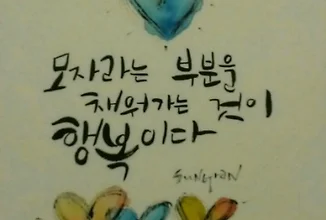 모자라는 부분을
채워가는 것이
행복이다